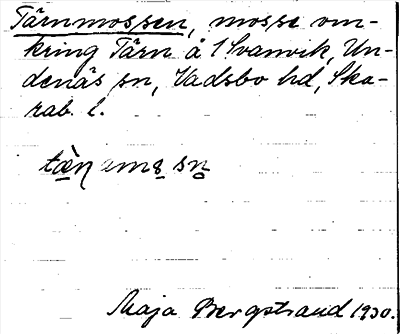 Tärnmossen, mosse om-
kring Tärn å 1 Svanvik, Un-
denäs sn, Vadsbo hd, Ska-
rab. l.
Maja Bergstrand 1930.